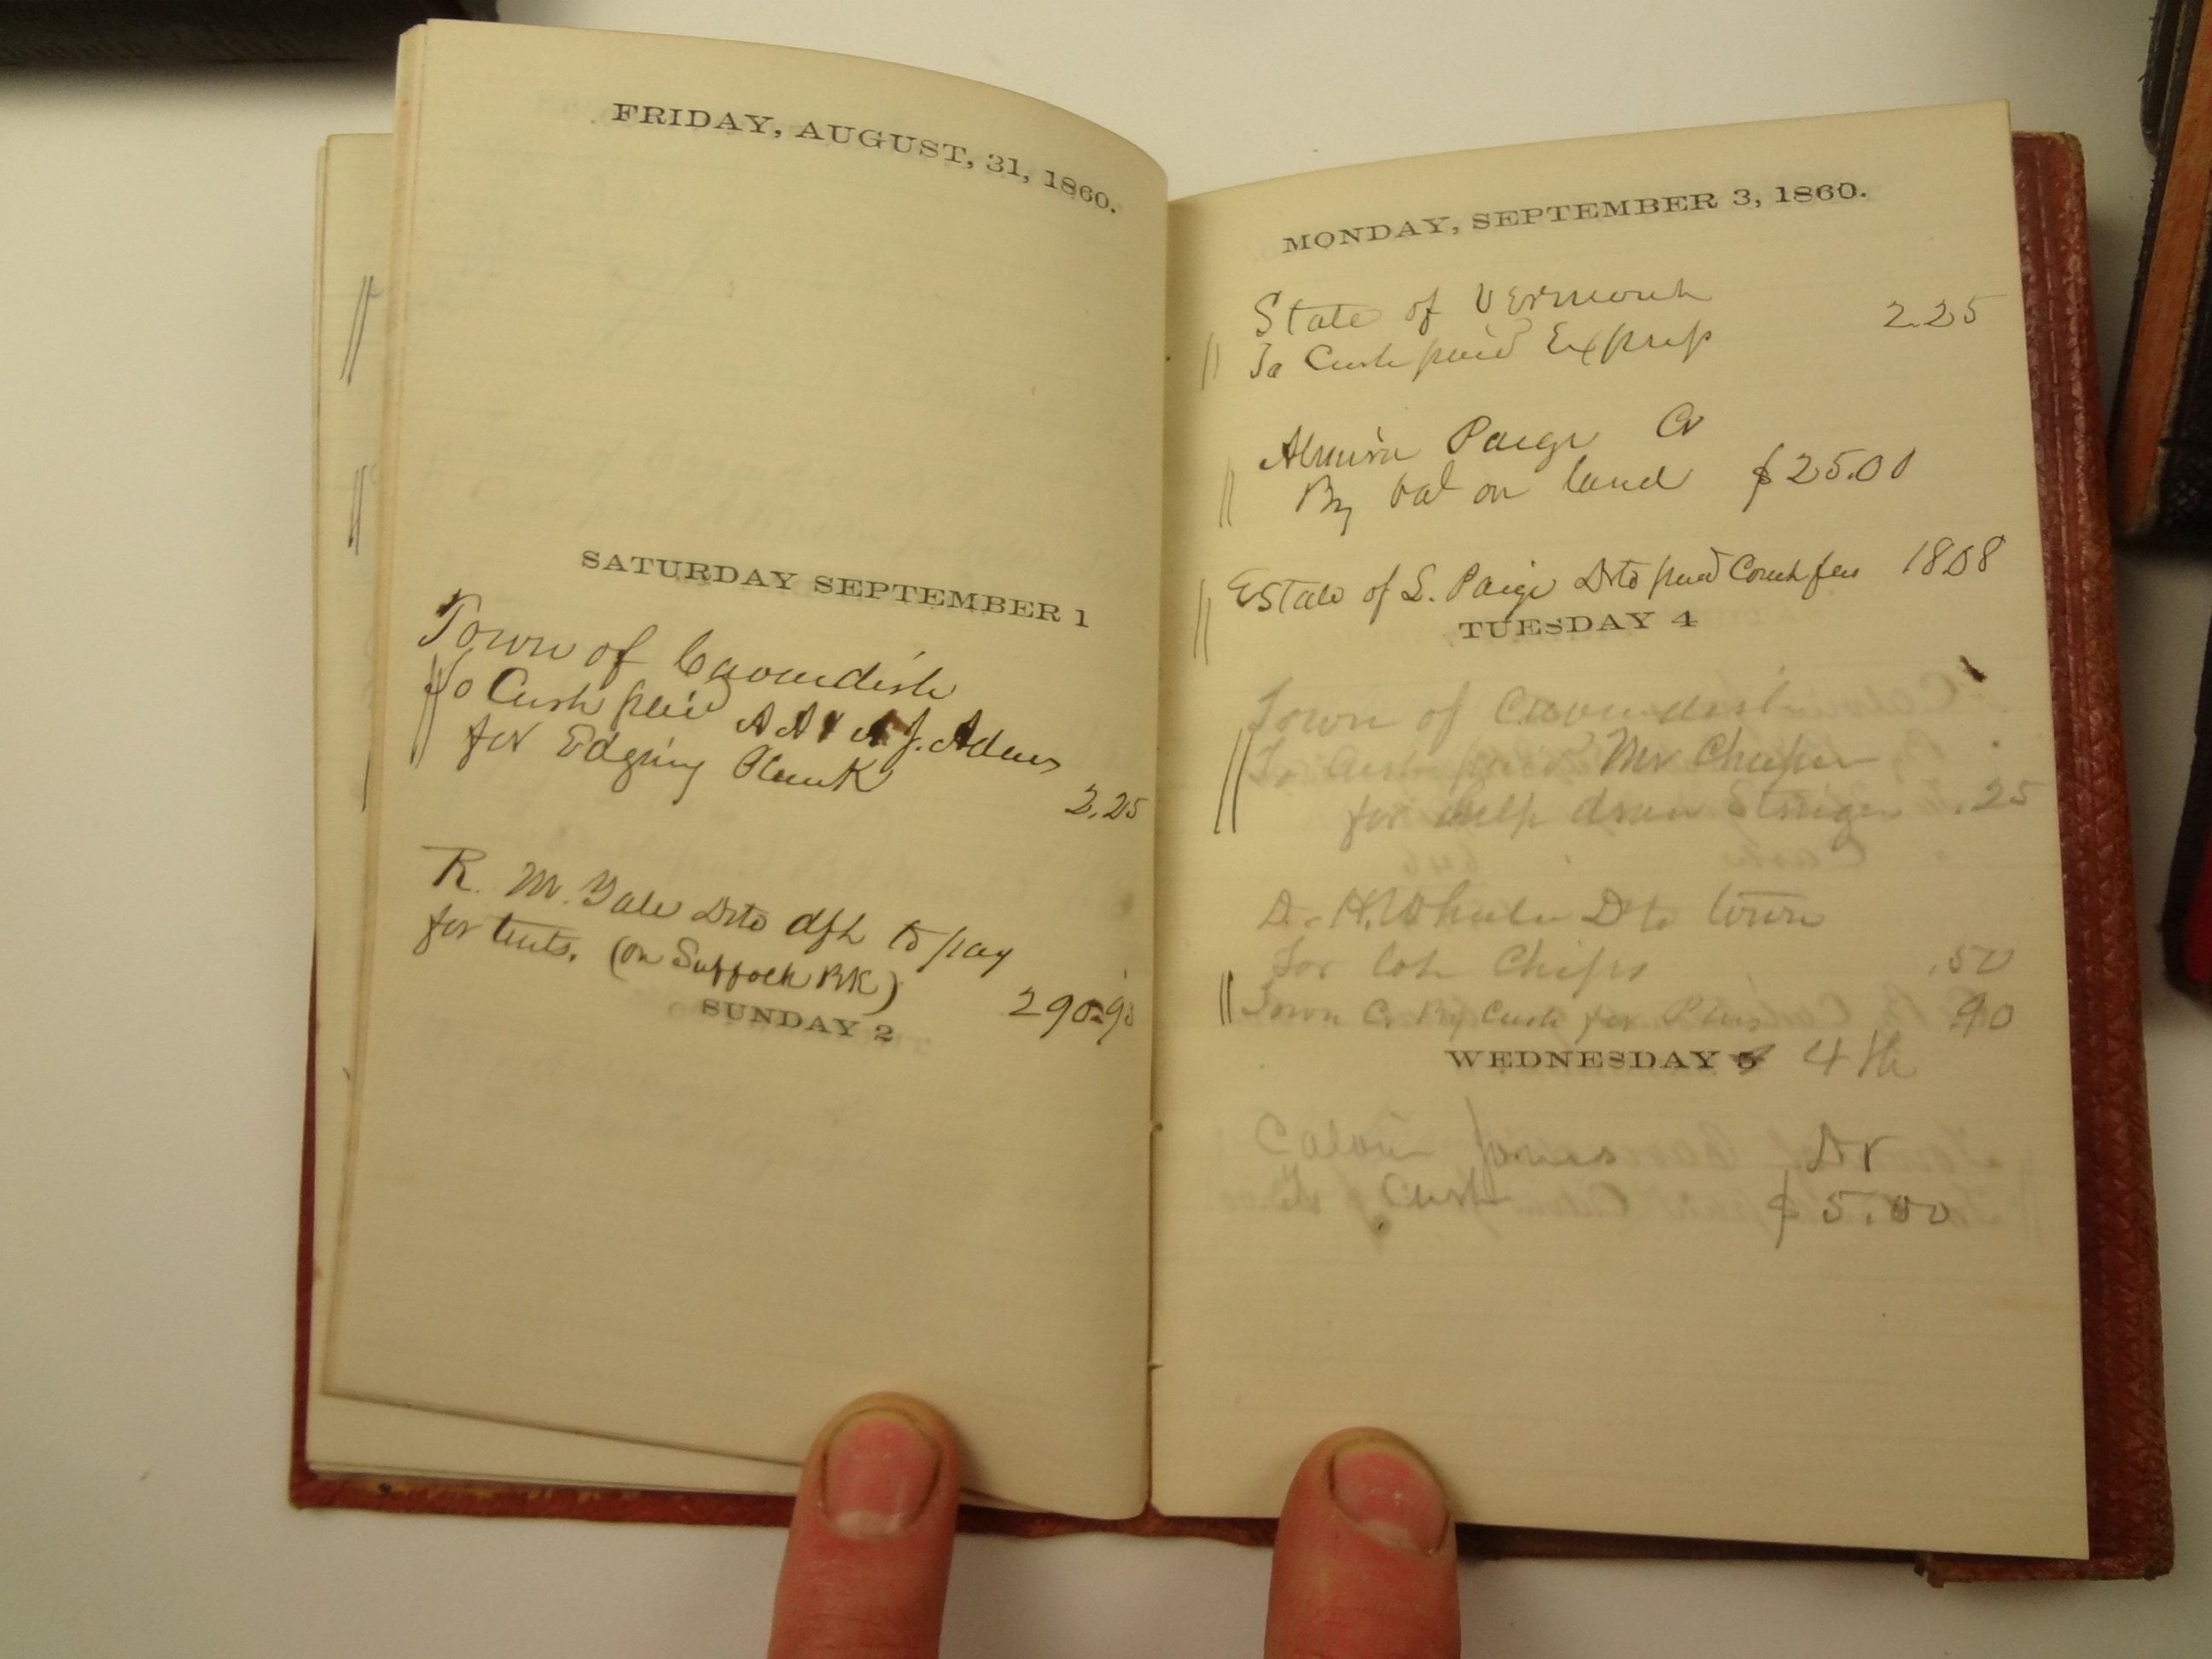 FRIDAY, AUGUST, 31, 1860.
SATURDAY SEPTEMBER 1
Town of Cavendish
To Cash paid A A & A J. Adams
for Edging Plank
2.25
R. M. Yale Dr to dft to pay
for tents. (on Suffolk BK)
290.90
SUNDAY 2
MONDAY, SEPTEMBER 3, 1860.
State of Vermont
To Cash paid Express 2.25
Almira Paige Cr
By bal on land $25.00
Estate of S. Paige Dr to paid Court fees 1808
TUESDAY 4
Town of Cavendish
To Cash paid Mr
for help draw Stringers .25
D. H. Wheeler Dr to town
For lot Chips .50
Town Cr By Cash for .90
WEDNESDAY 5 4th
Calvin Jones Dr
To Cash $5.00